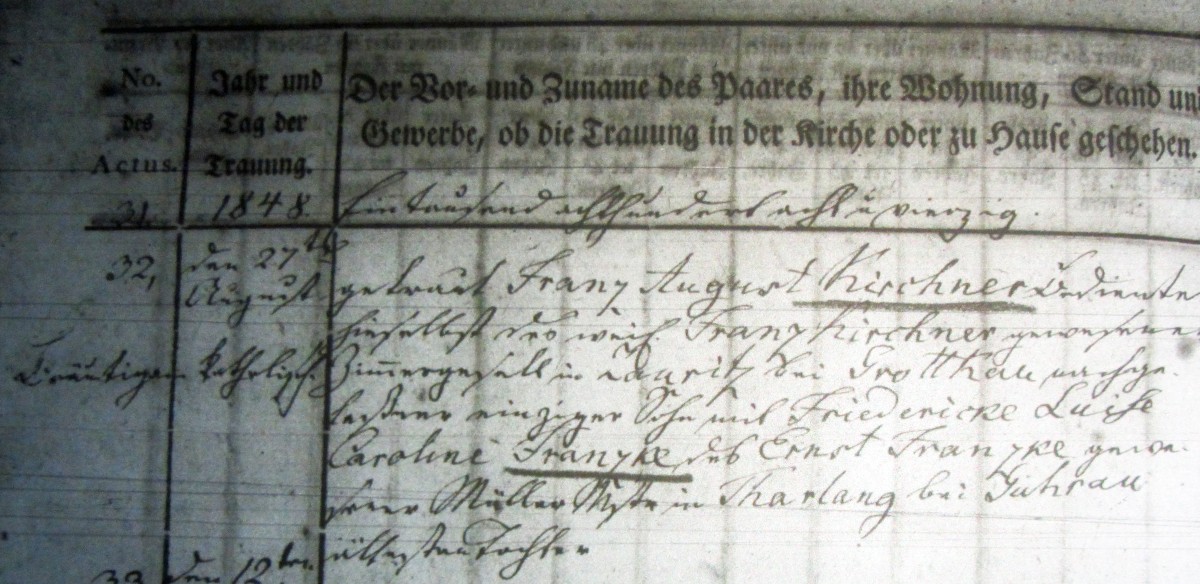 No.
des
Actus.
Jahr und
Tag der
Trauung.
Der Vor- und Zuname des Paares, ihre Wohnung, Stand un
Gewerbe, ob die Trauung in der Kirche oder zu Hause geschehen.
31.
1848.
Eintausend achthundert acht u vierzig.
32,
den 27ten
August
getraut Franz August Kirchner Bediente
hieselbst des weil. Franz Kirchner gewesene
Bräutigam
katholisch.
Zimmergesell in Lauritz bei Grottkau nachge-
laßner einziger Sohn mit Friedericke Luise
Caroline Franzke des Ernst Franzke gewe-
sener Müller Mstr in Tharlang bei Guhrau
ältesten Tochter
33
den 12ten